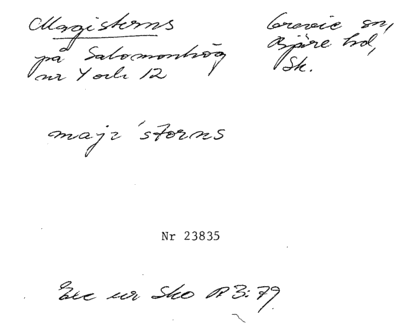 Magisterns
på Salomonhög
nr 4 och 12
Grevie sn,
Bjäre hd,
Sk.
maji'sterns
Nr 23835
Exc ur Sko A 3:79